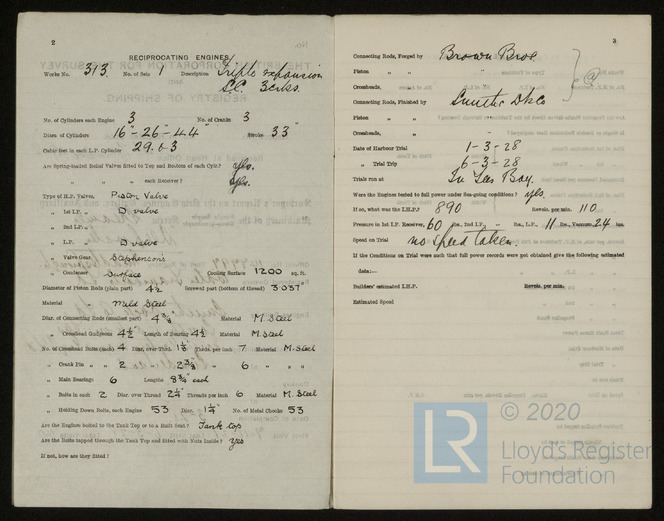 2
RECIPROCATING ENGINES
Works No. 313. No. of Sets 1 Description Triple expansion
S.C. 3 crks.
No. of Cylinders each Engine 3 No. of Cranks 3
Diars of Cylinders 16"-26-44" Stroke 33"
Cubic feet in each L.P. Cylinder 29.63
Are Spring-loaded Relief Valves fitted to Top and Bottom of each Cylr.? yes.
" " each Receiver? yes.
Type of H.P. Valves, Piston Valve
" 1st I.P. " D valve
" 2nd I.P. "
" L.P. D valve
" Valve Gear Stephenson's
" Condenser Surface Cooling Surface 1200 sq. ft.
Diameter of Piston Rods (plain part) 4½ Screwed part (bottom of thread) 3.037"
Material " Mild Steel
Diar. of Connecting Rods (smallest part) 4⅜ Material M. Steel
" Crosshead Gudgeons 4½" Length of Bearing 4½ Material M. Steel
No. of Crosshead Bolts (each) 4 Diar. over Thrd. 1⅞ Thrds. per inch 7 Material M. Steel
" Crank Pin " " 2 " 2⅜" " 6 " "
" Main Bearings 6 Lengths 8¾" each
" Bolts in each 2 Diar. over Thread 2¼" Threads per inch 6 Material M. Steel
" Holding Down Bolts, each Engine 53 Diar. 1¼" No. of Metal Chocks 53
Are the Engines bolted to the Tank Top or to a Built Seat? Tank top
Are the Bolts tapped through the Tank Top and fitted with Nuts Inside? Yes
If not, how are they fitted?
3
Connecting Rods, Forged by Brown Bros.
Piston " "
Crossheads, "
Connecting Rods, Finished by
Piston " "
Crossheads, "
Date of Harbour Trial 1-3-28
" Trial Trip 6-3-28
Trials run at In Tees Bay.
Were the Engines tested to full power under Sea-going conditions? yes.
If so, what was the I.H.P.? 890 Revols. per min. 110
Pressure in 1st I.P. Receiver, 60 lbs., 2nd I.P. " lbs., L.P., 11 lbs., Vacuum 24 ins.
Speed on Trial no speed taken.
If the Conditions on Trial were such that full power records were not obtained give the following estimated
data:—
Builders' estimated I.H.P. Revols. per min.
Estimated Speed
© 2020
LR Lloyd's Register
Foundation